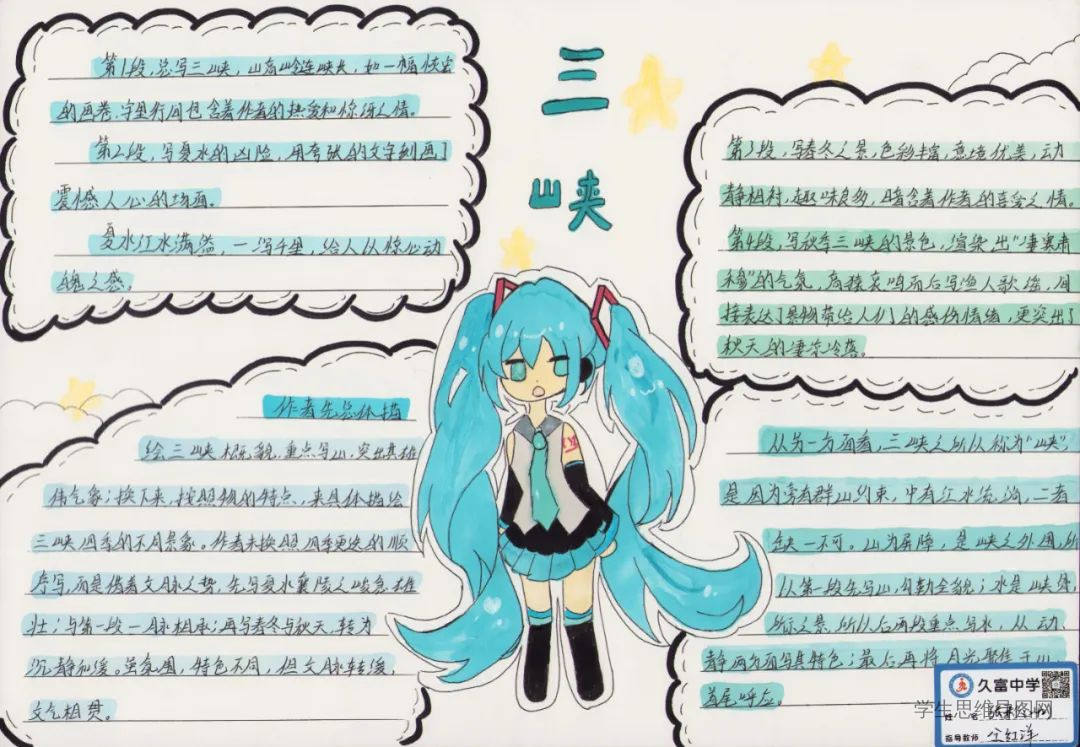 三
峡
第1段,总写三峡,山高岭连峡长,如一幅恢宏
的画卷.字里行间包含着作者的热爱和惊讶之情。
第2段,写夏水的凶险,用夸张的文字刻画了
震撼人心的场面。
夏水江水满溢,一泻千里,给人以惊心动
魄之感。
第3段,写春冬之景,色彩丰富,意境优美,动
静相衬,趣味良多,暗含着作者的喜爱之情。
第4段,写秋季三峡的景色,渲染出"凄寒肃
穆"的气氛,高猿哀鸣而后写渔人歌谣,间
接表达了景物带给人们的感伤情绪,更突出了
秋天的凄凉冷落。
作者先总体描
绘三峡概貌,重点写山,突出其雄
伟气象;接下来,按照物的特点,来具体描绘
三峡四季的不同景象。作者未按照四季更迭的顺
序写,而是循着文脉之势,先写夏水襄陵之峻急雄
壮;与第一段一脉相承;再写春冬与秋天,转为
沉静和缓。虽氛围,特色不同,但文脉转缓,
文气相贯。
从另一方面看,三峡之所以称为"峡",
是因为旁有群山约束,中有江水流淌,二者
缺一不可。山为屏障,是峡之外围,所
以第一段先写山,勾勒全貌;水是峡
所之景,所以后两段重点写水,从动、
静两方面写其特色;最后再将目光聚焦于山,
首尾呼应。
久富中学
学生思维导图网
姓名
指导教师